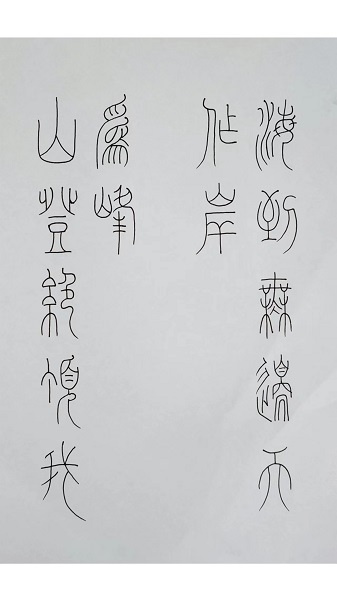 海到無邊天
作岸
山登絕頂我
爲峰